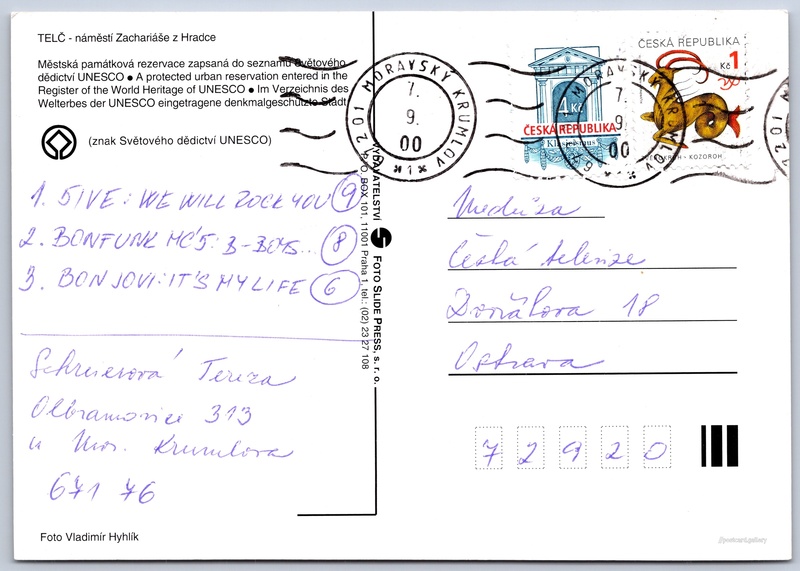 TELČ - náměstí Zachariáše z Hradce
Městská památková rezervace zapsaná do seznamu Světového
dědictví UNESCO ● A protected urban reservation entered in the
Register of the World Heritage of UNESCO ● Im Verzeichnis des
Welterbes der UNESCO eingetragene denkmalgeschützte Stadt
(znak Světového dědictví UNESCO)
1. 5IVE: WE WILL ROCK YOU 9
2. BONFUNK MC'S: B-BOYS... 8
3. BON JOVI: IT'S MY LIFE 6
Schreierová Tereza
Olbramovice 313
u Mor. Krumlova
671 76
Foto Vladimír Hyhlík
VYDAVATELSTVÍ FOTO SLIDE PRESS, s. r. o.
P. O. BOX 101, 11001 Praha 1, tel.: (02) 23 27 108
201 MORAVSKÝ KRUMLOV 1
7.
9.
00
4 Kč
ČESKÁ REPUBLIKA
Klasicismus
ČESKÁ REPUBLIKA
1
Kč
KOZOROH
7.
9.
00
201 MO
Medúza
Česká televize
Dvořákova 18
Ostrava
72920
//postcard.gallery